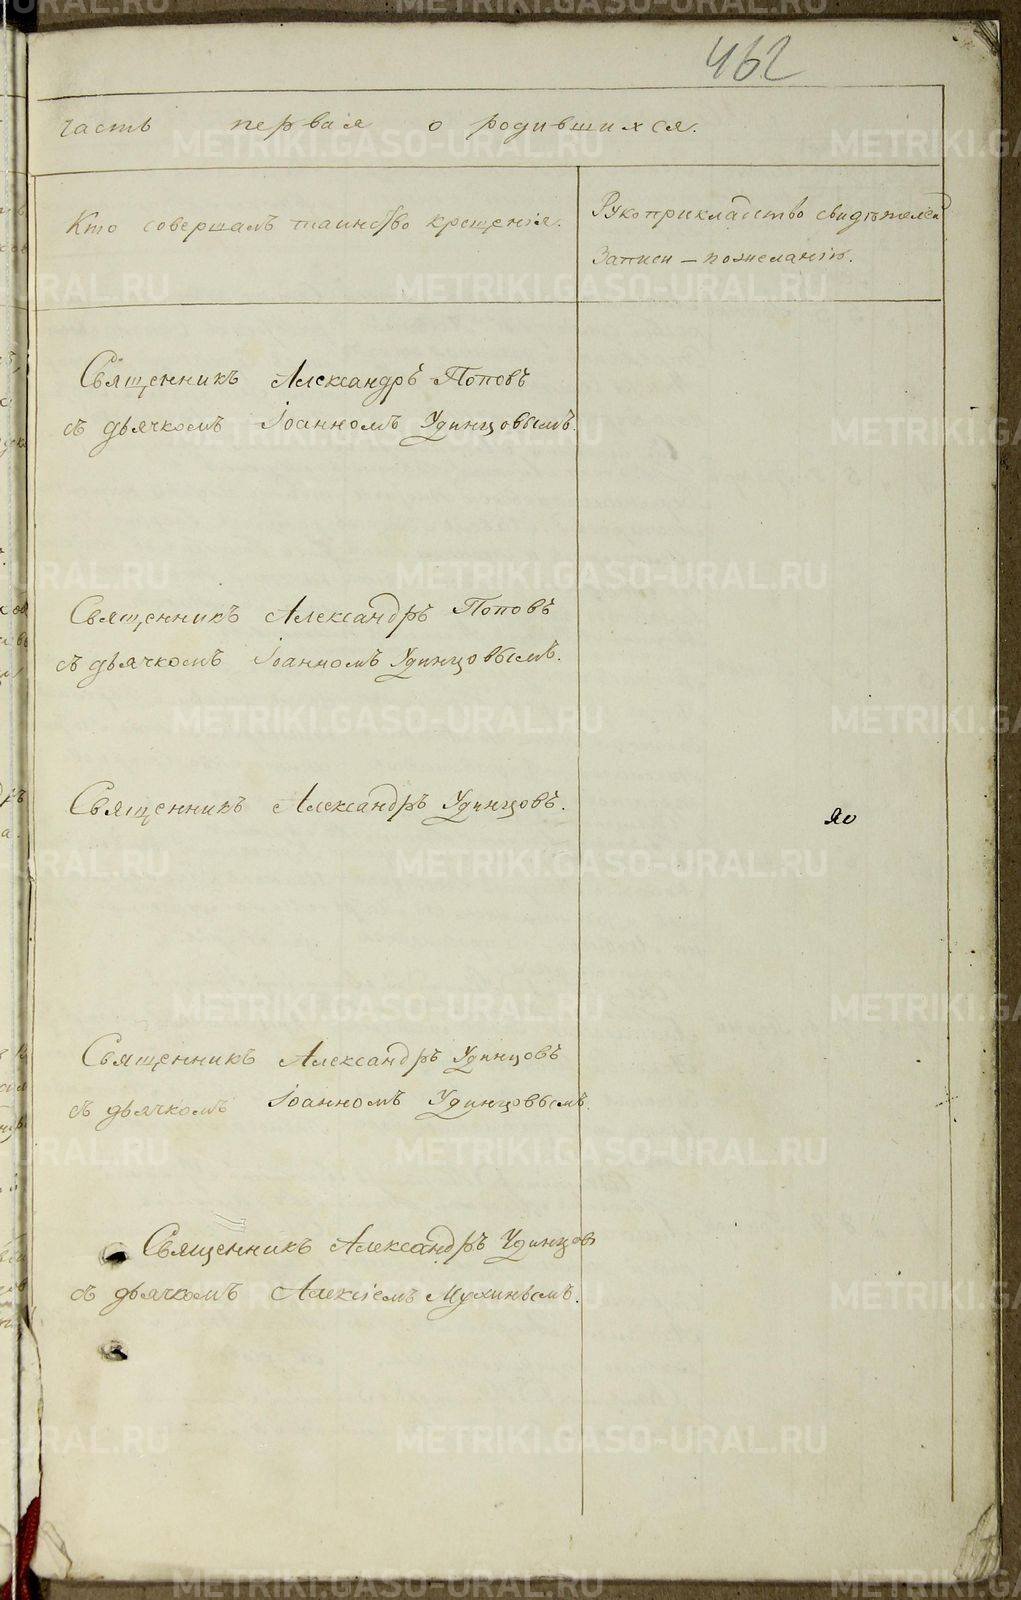 462
часть первая о родившихся.
Кто совершалъ таинство крещенія.
Рукоприкладство свидѣтелей
записи – по желанію.
Священникъ Александръ Поповъ
съ дьячкомъ Іоанномъ Удинцовымъ.
Священникъ Александръ Поповъ
съ дьячкомъ Іоанномъ Удинцовымъ.
Священникъ Александръ Удинцовъ.
яо
Священникъ Александръ Удинцовъ
съ дьячкомъ Іоанномъ Удинцовымъ.
Священникъ Александръ Удинцовъ
съ дьячкомъ Алексіемъ Мухинымъ.
METRIKI.GASO-URAL.RU